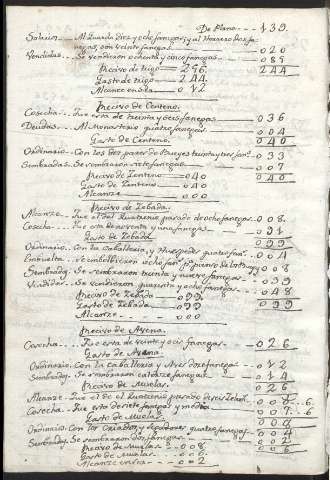 De Plana . . . 139.
Salarios . . . Al Guarda diez y ocho fanegas, y al Herrero dos fa-
negas, son veinte fanegas . . . 020
Vendidas . . . Se vendieron ochenta y cinco fanegas . . . 085
Recivo de trigo . . . 256. 244
Gasto de trigo . . . 244
Alcance en si a . . . 012
Recivo de Centeno.
Cosecha . . . Fue esta de treinta y seis fanegas . . . 036
Deudas . . . Al Monasterio quatro fanegas . . . 004
Gasto de Centeno. 040
Ordinario . . . Con los dos pares de Bueyes treinta y tres fan.s . . . 033
Sembradas . . . Se sembraron siete fanegas . . . 007
Recivo de Zenteno . . . 040 040
Gasto de Zenteno . . . 040
Alcanze . . . 000
Recivo de Zebada.
Alcanze . . . Fue el del Quatrienio pasado de ocho fanegas . . . 008.
Cosecha . . . Fue esta de noventa y una fanegas . . . 091
Gasto de Zebada. 099
Ordinario . . . Con la Caballeria, y Huespedes quatro fan.s . . . 004
008
Sembradas . . . Se sembraron treinta y nueve fanegas . . . 039
Vendidas . . . Se vendieron quarenta y ocho fanegas . . . 048
Recivo de Zebada . . . 099 099
Gasto de Zebada . . . 099
Alcanze . . . 000
Recivo de Avena.
Cosecha . . . Fue esta de veinte y seis fanegas . . . 026
Gasto de Avena.
Ordinario . . . Con la Caballeria y Aves doze fanegas . . . 012
Sembradas . . . Se sembraron catorze fanegas . . . 014
Recivo de Muelas. 026
Alcanze . . . Fue el de el Quatrienio pasado de
Cosecha . . . Fue esta de siete fanegas y media . . . 007. . 6
Gasto de Muelas. 008
Ordinario . . . Con los Criados, y segadores quatro fanegas . . . 004
Sembradas . . . Se sembraron dos fanegas . . . 002
Recivo de Muelas . . . 008. 006
Gasto de Muelas . . . 006.
Alcanze en si a . . . 002